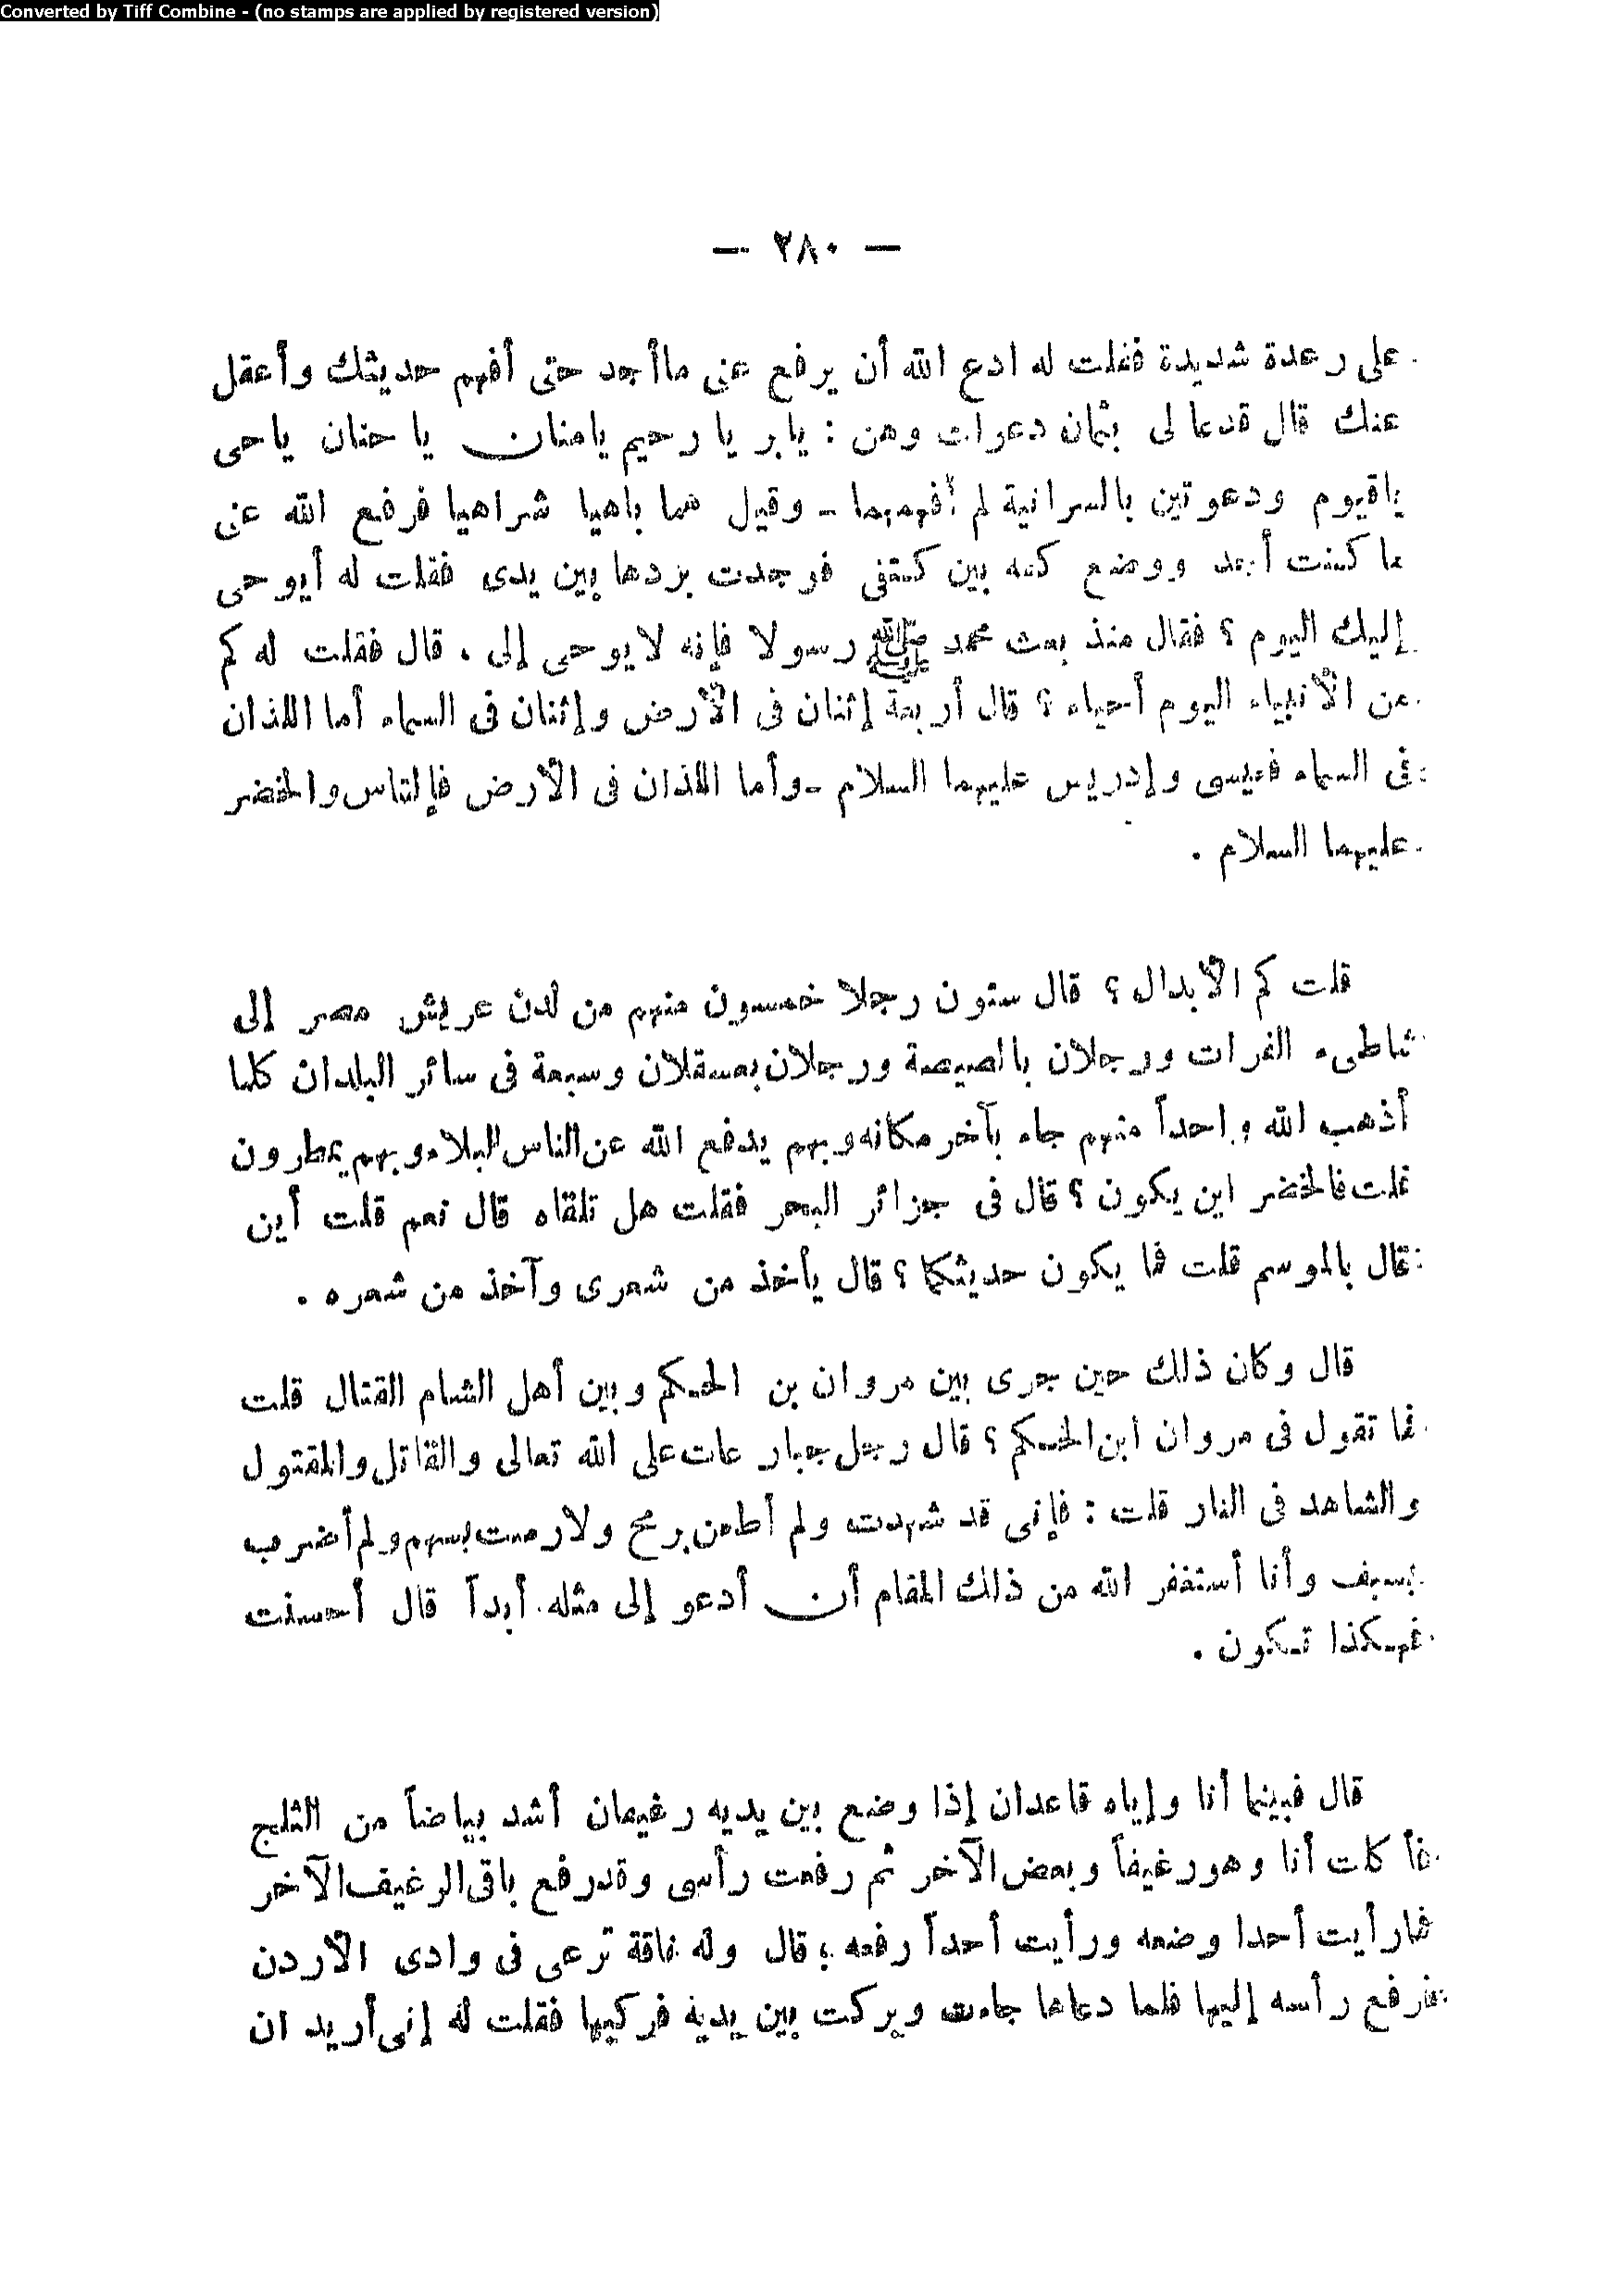 Converted by Tiff Combine - (no stamps are applied by registered version)
— ٢٨٠ —
على رعدة شديدة فقلت له ادع الله أن يرفع عنى ماأجد حتى أفهم حديثك وأعقل
عنك قال فدعا لى بثمان دعوات وهن : يابر يا رحيم يامنان يا حنان ياحى
ياقيوم ودعوتين بالسرانية لم أفهمهما - وقيل هما باهيا شراهيا فرفع الله عنى
ما كنت أجد ووضع كفه بين كتفى فوجدت بردها بين يدى فقلت له أيوحى
إليك اليوم ؟ فقال منذ بعث محمد ﷺ رسولا فإنه لايوحى إلى . قال فقلت له كم
من الأنبياء اليوم أحياء ؟ قال أربعة إثنان فى الأرض وإثنان فى السماء أما اللذان
فى السماء فعيسى وإدريس عليهما السلام - وأما اللذان فى الأرض فإلياس والخضر
عليهما السلام .
قلت كم الأبدال ؟ قال ستون رجلا خمسون منهم من لدن عريش مصر إلى
شاطىء الفرات ورجلان بالمصيصة ورجلان بعسقلان وسبعة فى سائر البلدان كلما
أذهب الله واحداً منهم جاء بآخر مكانه وبهم يدفع الله عن الناس البلاء وبهم يمطرون
قلت فالخضر اين يكون ؟ قال فى جزائر البحر فقلت هل تلقاه قال نعم قلت أين
قال بالموسم قلت فما يكون حديثكما ؟ قال يأخذ من شعرى وآخذ من شعره .
قال وكان ذلك حين جرى بين مروان بن الحكم وبين أهل الشام القتال قلت
فما تقول فى مروان ابن الحكم ؟ قال رجل جبار عات على الله تعالى والقاتل والمقتول
والشاهد فى النار قلت : فإنى قد شهدت ولم أطعن برمح ولارميت بسهم ولم أضرب
بسيف وأنا أستغفر الله من ذلك المقام أن أدعو إلى مثله أبداً قال أحسنت
فهكذا تكون .
قال فبينما أنا وإياه قاعدان إذا وضع بين يديه رغيفان أشد بياضاً من الثلج
فأكلت أنا وهو رغيفاً وبعض الآخر ثم رفعت رأسى وقدرفع باقى الرغيف الآخر
فمارأيت أحدا وضعه ورأيت أحداً رفعه ؛ قال وله ناقة ترعى فى وادى الأردن
فرفع رأسه إليها فلما دعاها جاءت وبركت بين يديه فركبها فقلت له إنى أريد ان